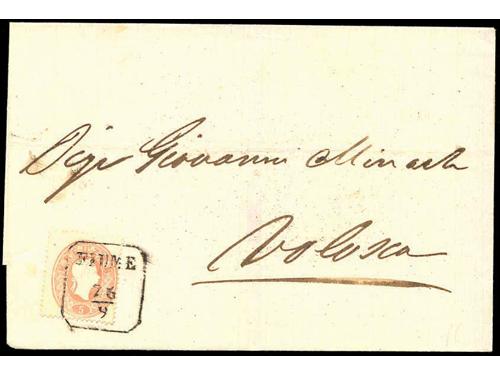 Giovanni Minach
Volosca
FIUME
26
9
5